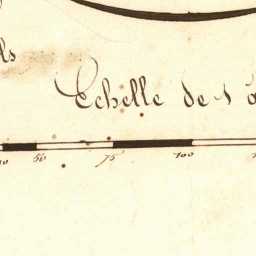 ls
Echelle de 1 à
50 75 100